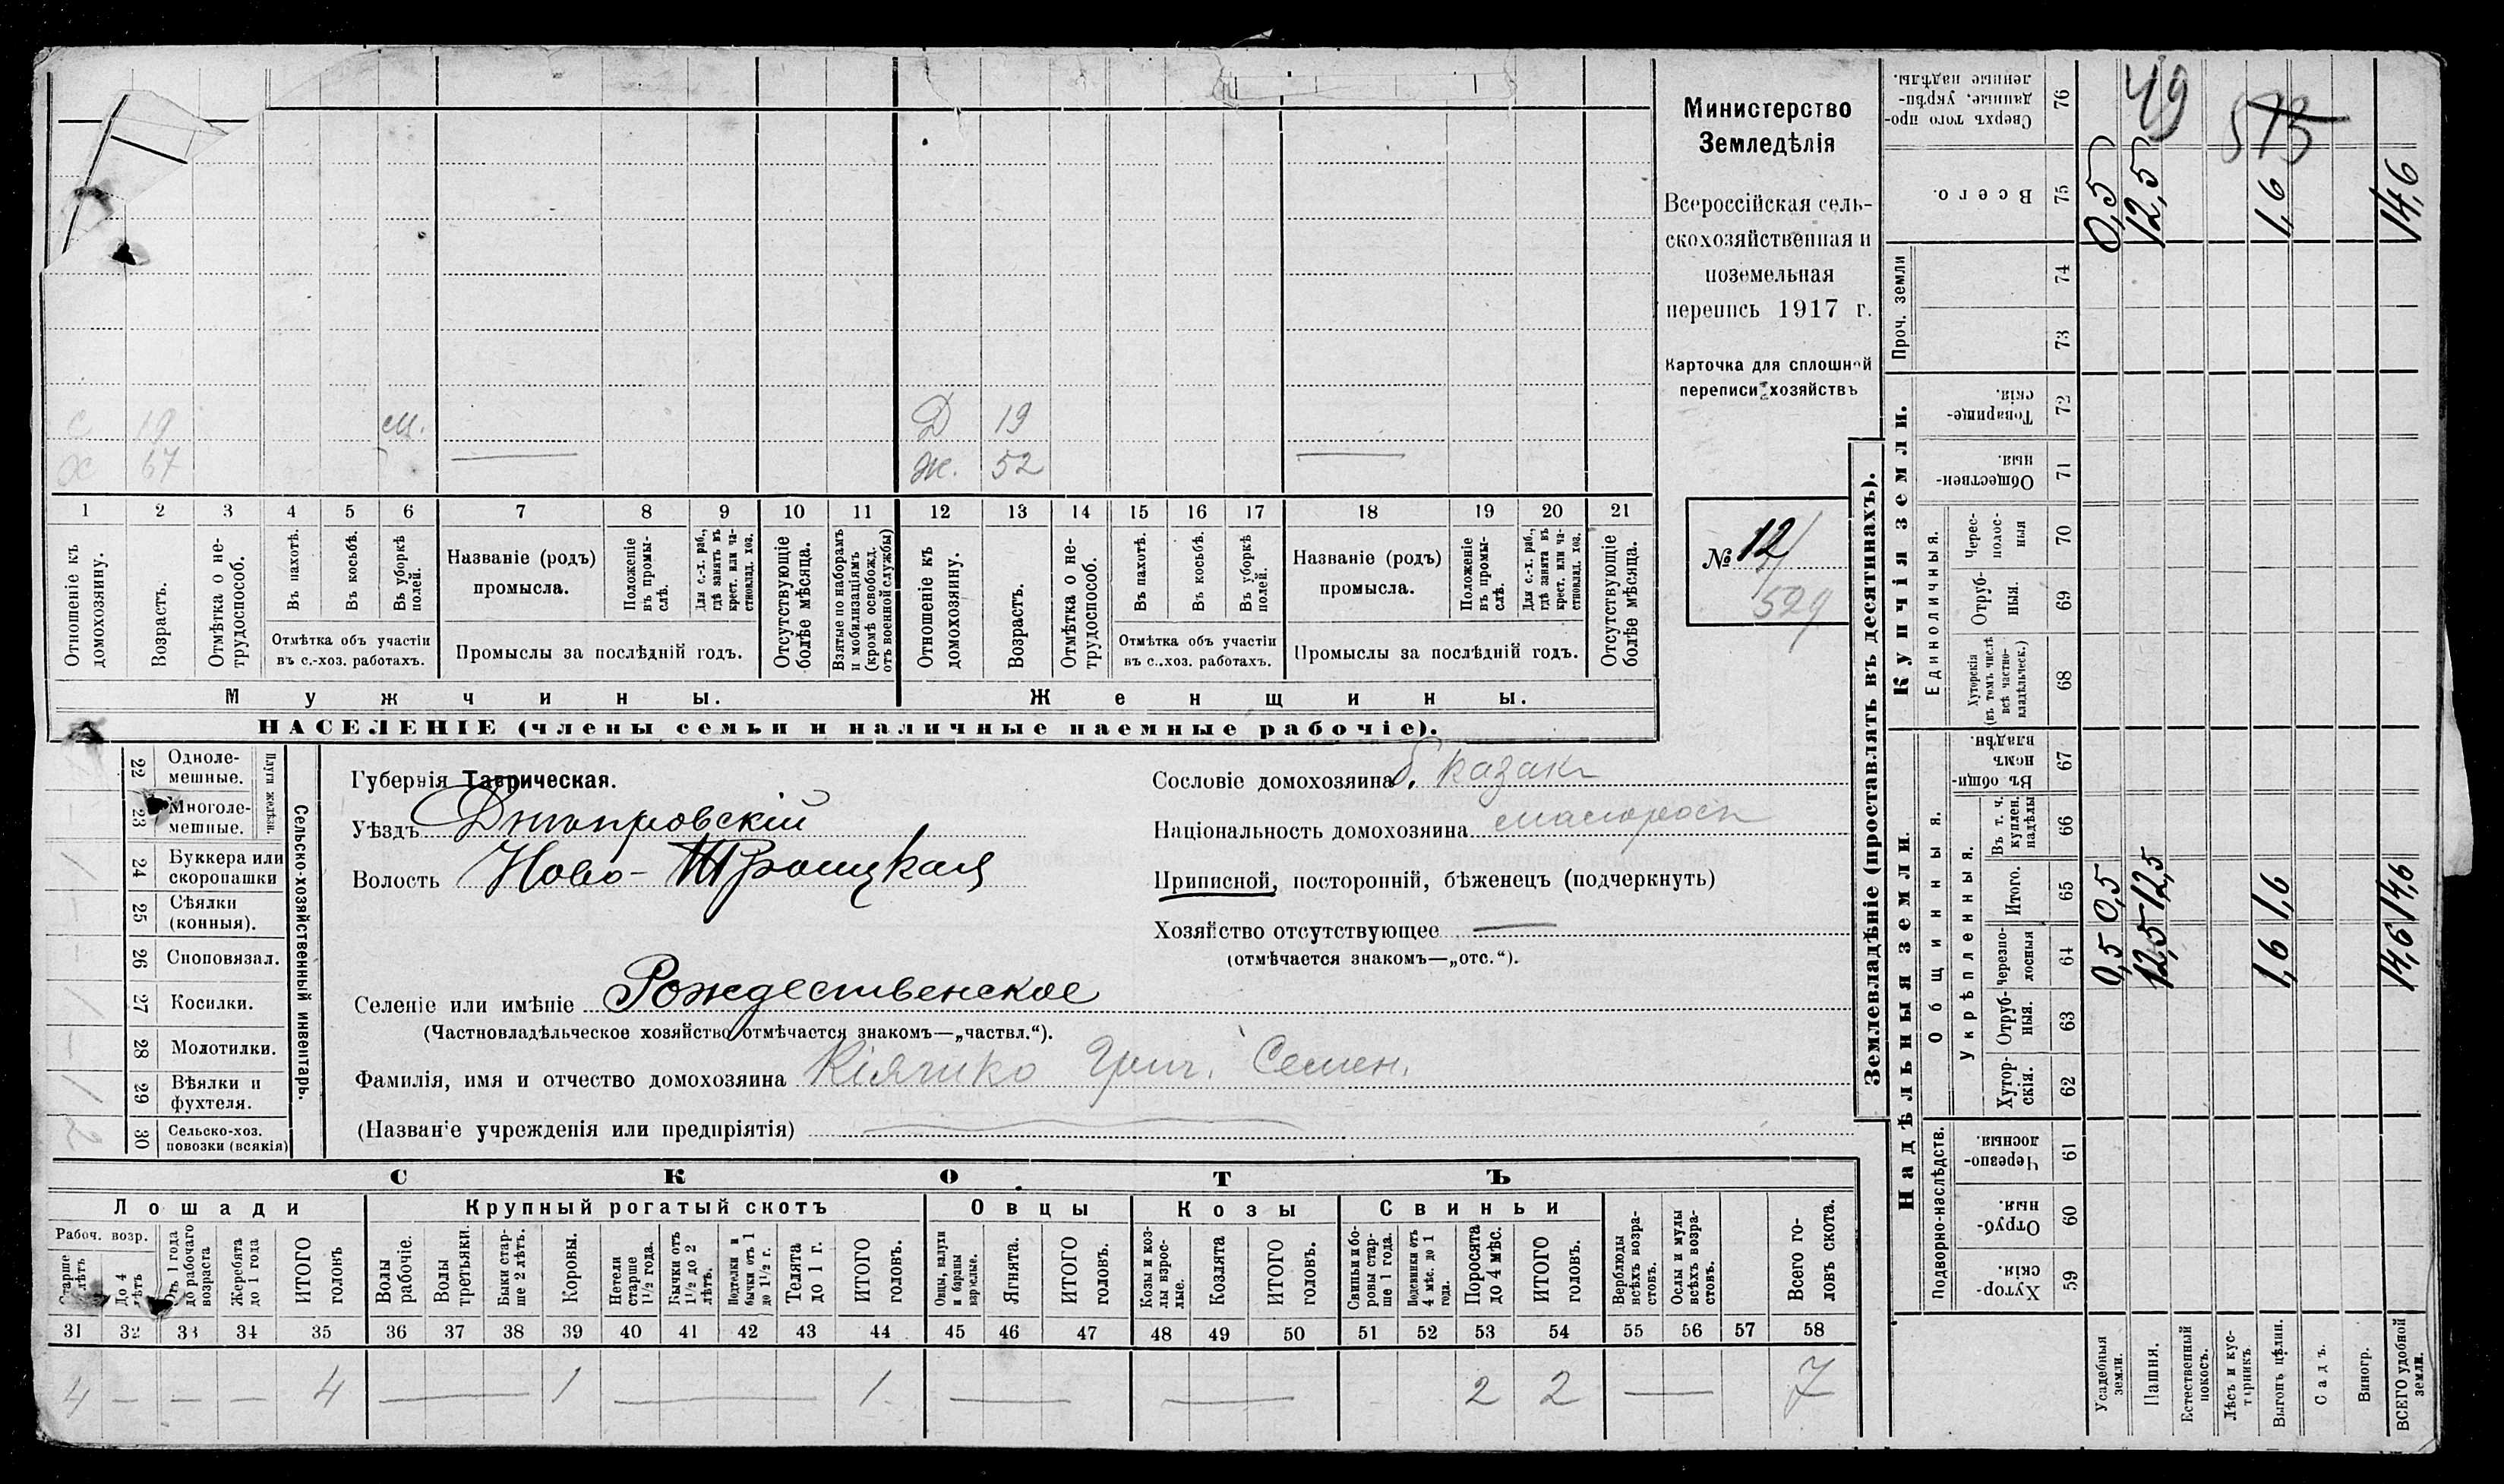 Министерство
Земледѣлія
Всероссійская сель-
скохозяйственная и
поземельная
перепись 1917 г.
Карточка для сплошной
переписи хозяйствъ
№ 12
529
С 19 м. Д 19
Х 67 Ж. 52
1 2 3 4 5 6 7 8 9 10 11 12 13 14 15 16 17 18 19 20 21
Отношеніе къ домохозяину.
Возрастъ.
Отмѣтка о не-трудоспособ.
Въ пахотѣ.
Въ косьбѣ.
Въ уборкѣ полей.
Отмѣтка объ участіи
въ с.-хоз. работахъ.
Названіе (родъ)
промысла.
Положеніе въ промы-слѣ.
Для с.-х. раб., гдѣ занятъ въ крест. или ча-стновлад. хоз.
Промыслы за послѣдній годъ.
Отсутствующіе болѣе мѣсяца.
Взятые по наборамъ и мобилизаціямъ (кромѣ освобожд. отъ военной службы)
Отношеніе къ домохозяину.
Возрастъ.
Отмѣтка о не-трудоспособ.
Въ пахотѣ.
Въ косьбѣ.
Въ уборкѣ полей.
Отмѣтка объ участіи
въ с..хоз. работахъ.
Названіе (родъ)
промысла.
Положеніе въ промы-слѣ.
Для с.-х. раб., гдѣ занята въ крест. или ча-стновлад. хоз.
Промыслы за послѣдній годъ.
Отсутствующіе болѣе мѣсяца.
Мужчины. Женщины.
НАСЕЛЕНІЕ (члены семьи и наличные наемные рабочіе).
Сельско-хозяйственный инвентарь.
Плуги желѣзн.
22 Одноле-мешные.
23 Многоле-мешные.
24 Буккера или скоропашки 1
25 Сѣялки (конныя). —
26 Сноповязал. —
27 Косилки. 1
28 Молотилки. —
29 Вѣялки и фухтеля. 1
30 Сельско-хоз. повозки (всякія) 2
Губернія Таврическая.
Уѣздъ Днѣпровскій
Волость Ново-Троицкая
Селеніе или имѣніе Рождественское
(Частновладѣльческое хозяйство отмѣчается знакомъ—„частвл.“).
Фамилія, имя и отчество домохозяина Кіяшко Григ. Семен.
(Названіе учрежденія или предпріятія)
Сословіе домохозяина б. казакъ
Національность домохозяина малоросъ
Приписной, посторонній, бѣженецъ (подчеркнуть)
Хозяйство отсутствующее —
(отмѣчается знакомъ—„отс.“).
СКОТЪ
Лошади Крупный рогатый скотъ Овцы Козы Свиньи
Рабоч. возр.
Старше 4 лѣтъ
До 4 лѣтъ
Отъ 1 года до рабочаго возраста
Жеребята до 1 года
ИТОГО головъ
Волы рабочіе.
Волы третьяки.
Быки стар-ше 2 лѣтъ.
Коровы.
Нетели старше 1½ года.
Бычки отъ 1½ до 2 лѣтъ.
Подтелки и бычки отъ 1 до 1½ г.
Телята до 1 г.
ИТОГО головъ.
Овцы, валухи и бараны взрослые.
Ягнята.
ИТОГО головъ.
Козы и коз-лы взрос-лые.
Козлята
ИТОГО головъ.
Свиньи и бо-ровы стар-ше 1 года.
Подсвинки отъ 4 мѣс. до 1 года.
Поросята до 4 мѣс.
ИТОГО головъ.
Верблюды всѣхъ возра-стовъ.
Ослы и мулы всѣхъ возра-стовъ.
Всего го-ловъ скота.
31 32 33 34 35 36 37 38 39 40 41 42 43 44 45 46 47 48 49 50 51 52 53 54 55 56 57 58
4 — — — 4 — 1 — 1 — — 2 2 — 7
Землевладѣніе (проставлять въ десятинахъ).
Надѣльныя земли.
Подворно-наслѣдств.
Хутор-скія. 59
Отруб-ныя 60
Черезпо-лосныя. 61
Общинныя.
Укрѣпленныя.
Хутор-скія. 62
Отруб-ныя. 63
Черезпо-лосныя 64
Итого. 65
Въ т. ч. куплен. надѣлы 66
Въ общи-номъ владѣн. 67
Купчія земли.
Единоличныя.
Хуторскія (въ томъ числѣ всѣ частно-владѣльческ.) 68
Отруб-ныя. 69
Черес-полос-ныя 70
Обществен-ныя. 71
Товарище-скія. 72
Проч. земли
73 74
Всего. 75
Сверхъ того про-данные, укрѣп-ленные надѣлы. 76
Усадебныя земли. 0,5 0,5 0,5
Пашня. 12,5 12,5 12,5
Естественный покосъ.
Лѣсъ и кус-тарникъ.
Выгонъ цѣлин. 1,6 1,6 1,6
Садъ.
Виногр.
ВСЕГО удобной земли. 14,6 14,6 14,6
49
573